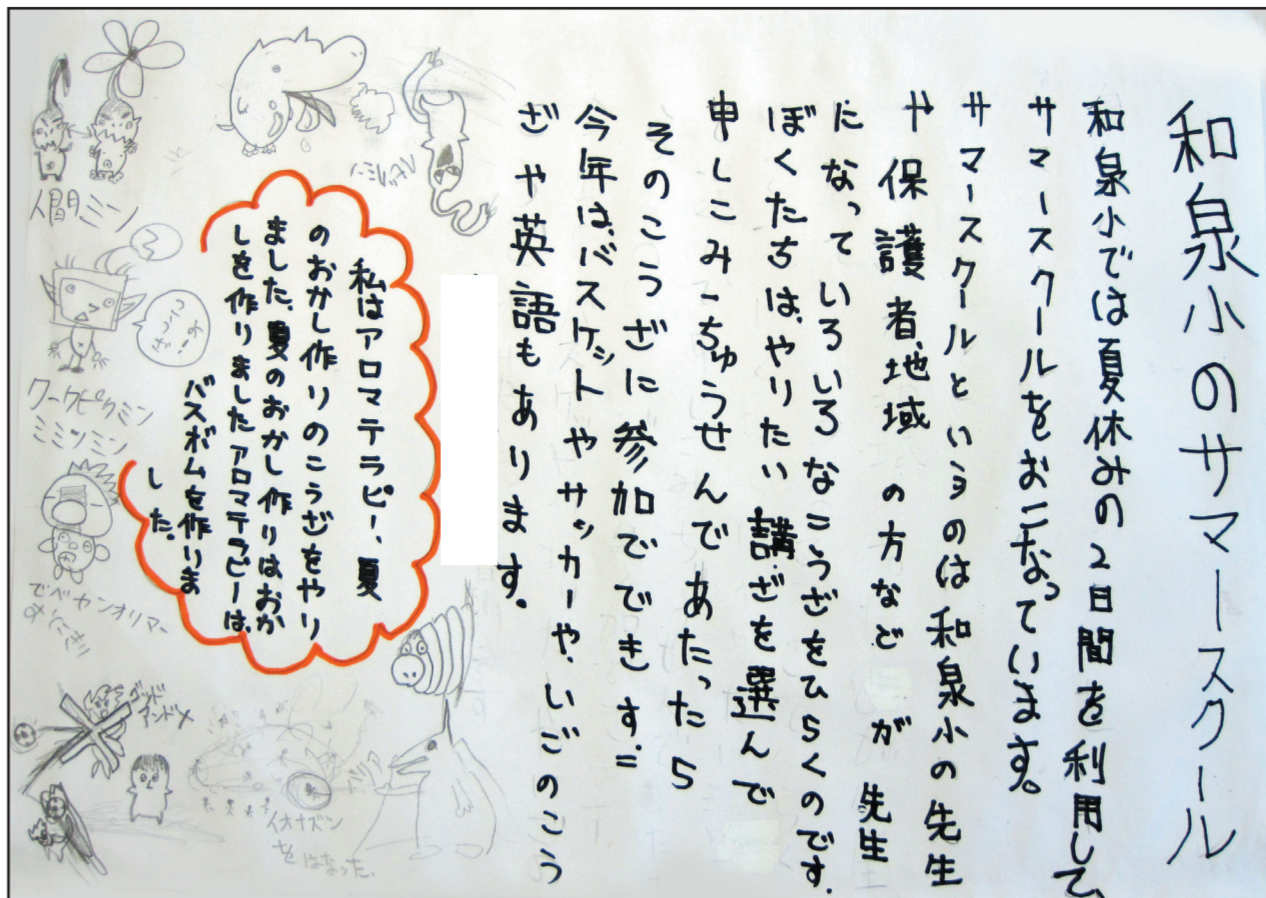 和泉小のサマースクール
和泉小では夏休みの2日間を利用して、
サマースクールをおこなっています。
サマースクールというのは和泉小の先生
や保護者、地域の方などが先生
になっていろいろなこうざをひらくのです。
ぼくたちは、やりたい講ざを選んで
申しこみ、ちゅうせんであたったら
そのこうざに参加でできす。
今年は、バスケットやサッカーや、いごのこう
ざや英語もあります。
私はアロマテラピー、夏
のおかし作りのこうざをやり
ました。夏のおかし作りは、おか
しを作りましたアロマテラピーは、
バスボムを作りま
した。
人間ミン
ワークピクミン
ミミッミン
イオナズン
をはなった.